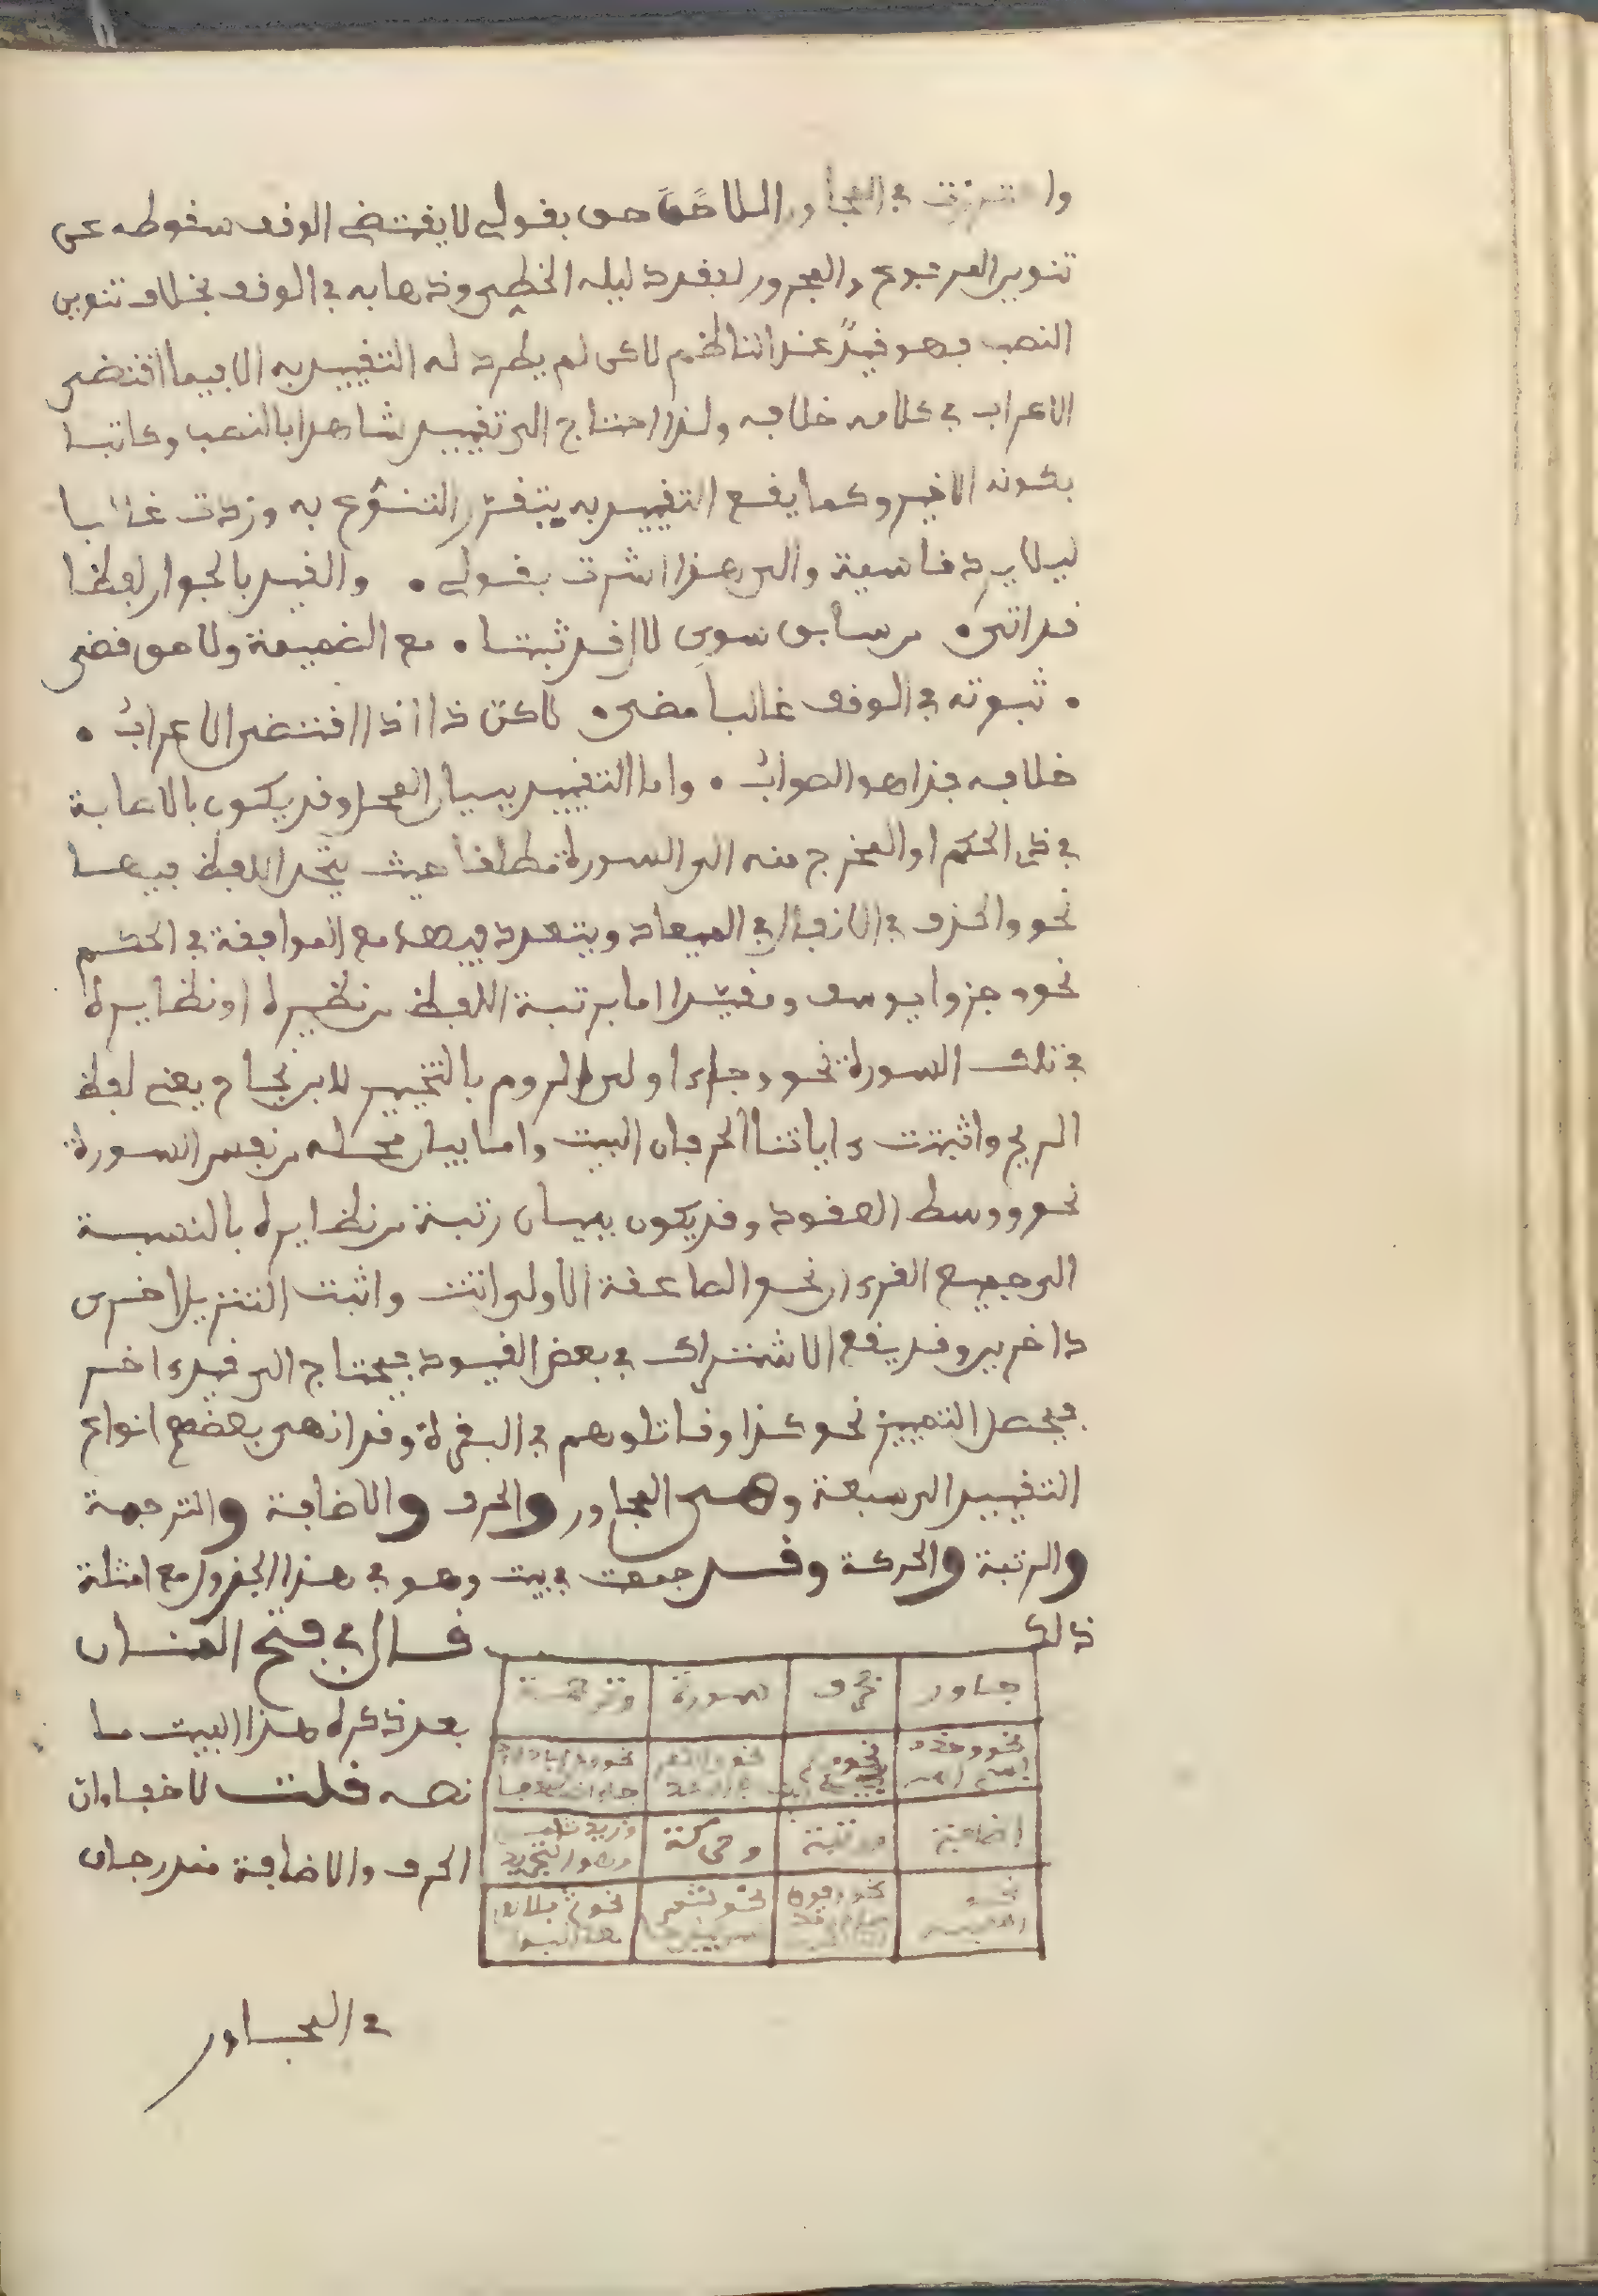 واحترزت في المجاور اللاحق بقولي لا يقتضي الوقف سقوطه عن
تنوين المرفوع والمجرور لفقد دليله الخطي وذهابه في الوقف بخلاف تنوين
النصب فهو قيد عند الناظم لاكن لم يطرد له التقييد به الا فيما اقتضى
الاعراب في كلامه خلافه ولذا احتاج الى تقييد شاهدا بالنصب وكاتبا
بكونه الاخير وكما يقع التقييد به يتقرر التنوع به وزدت غالبا
ليلا يرد قاسية والى هذا اشرت بقولي • والقيد بالجوار لفظا
قد اتى • من سابق سوى لا إ قد ثبتا • مع الضميمة ولاحق قضى
• ثبوته في الوقف غالبا مضى • لاكن ذا اذا اقتضى الاعراب •
خلافه فذا هو الصواب • واما التقييد ببيان المحل وقد يكون بالاضافة
في ذي الحكم او المخرج منه الى السورة مطلقا حيث يتحد اللفظ فيها
نحو والحذف في الانفال في الميعاد ويتعدد فيها مع الموافقة في الحكم
نحو جزوا يوسف ومقيدا اما برتبة اللفظ من نظيره او نظايره
في تلك السورة نحو وجاء اولى الروم بالتخيير لابن نجاح يعني لفظ
الريح واثبتت ءاياتنا الحرفان البيت واما ببيان محله من نفس السورة
نحو ووسط العقود وقد يكون ببيان رتبة من نظايره بالنسبة
الى جميع القرءان نحو الصاعقة الاولى اتت واثبت التنزيل اخرى
داخرين وقد يقع الاشتراك في بعض القيود فيحتاج الى قيد ءاخر
فيحصل التمييز نحو كذا وقاتلوهم في البقرة وقد انهى بعضهم انواع
التقييد الى سبعة وهي المجاور والحرف والاضافة والترجمة
والرتبة والحركة وقد جمعت في بيت وهو في هذا الجدول مع امثلة
ذلك
قال في فتح المنان
جاور بحرف سورة وترجمة
بعد ذكره هذا البيت ما
نصه قلت لا خفا وان
اضافة ورتبة وحركة
الحرف والاضافة مندرجان
في المجاور